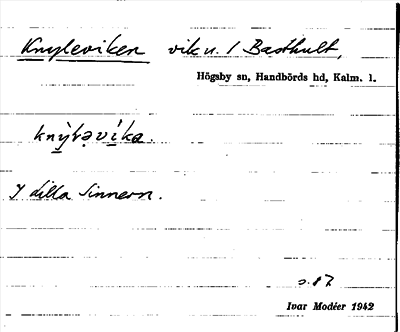 Knyleviken vik u. / Basthult,
Högsby sn, Handbörds hd, Kalm. l.
I lilla Sinnern.
s. 87
Ivar Modéer 1942